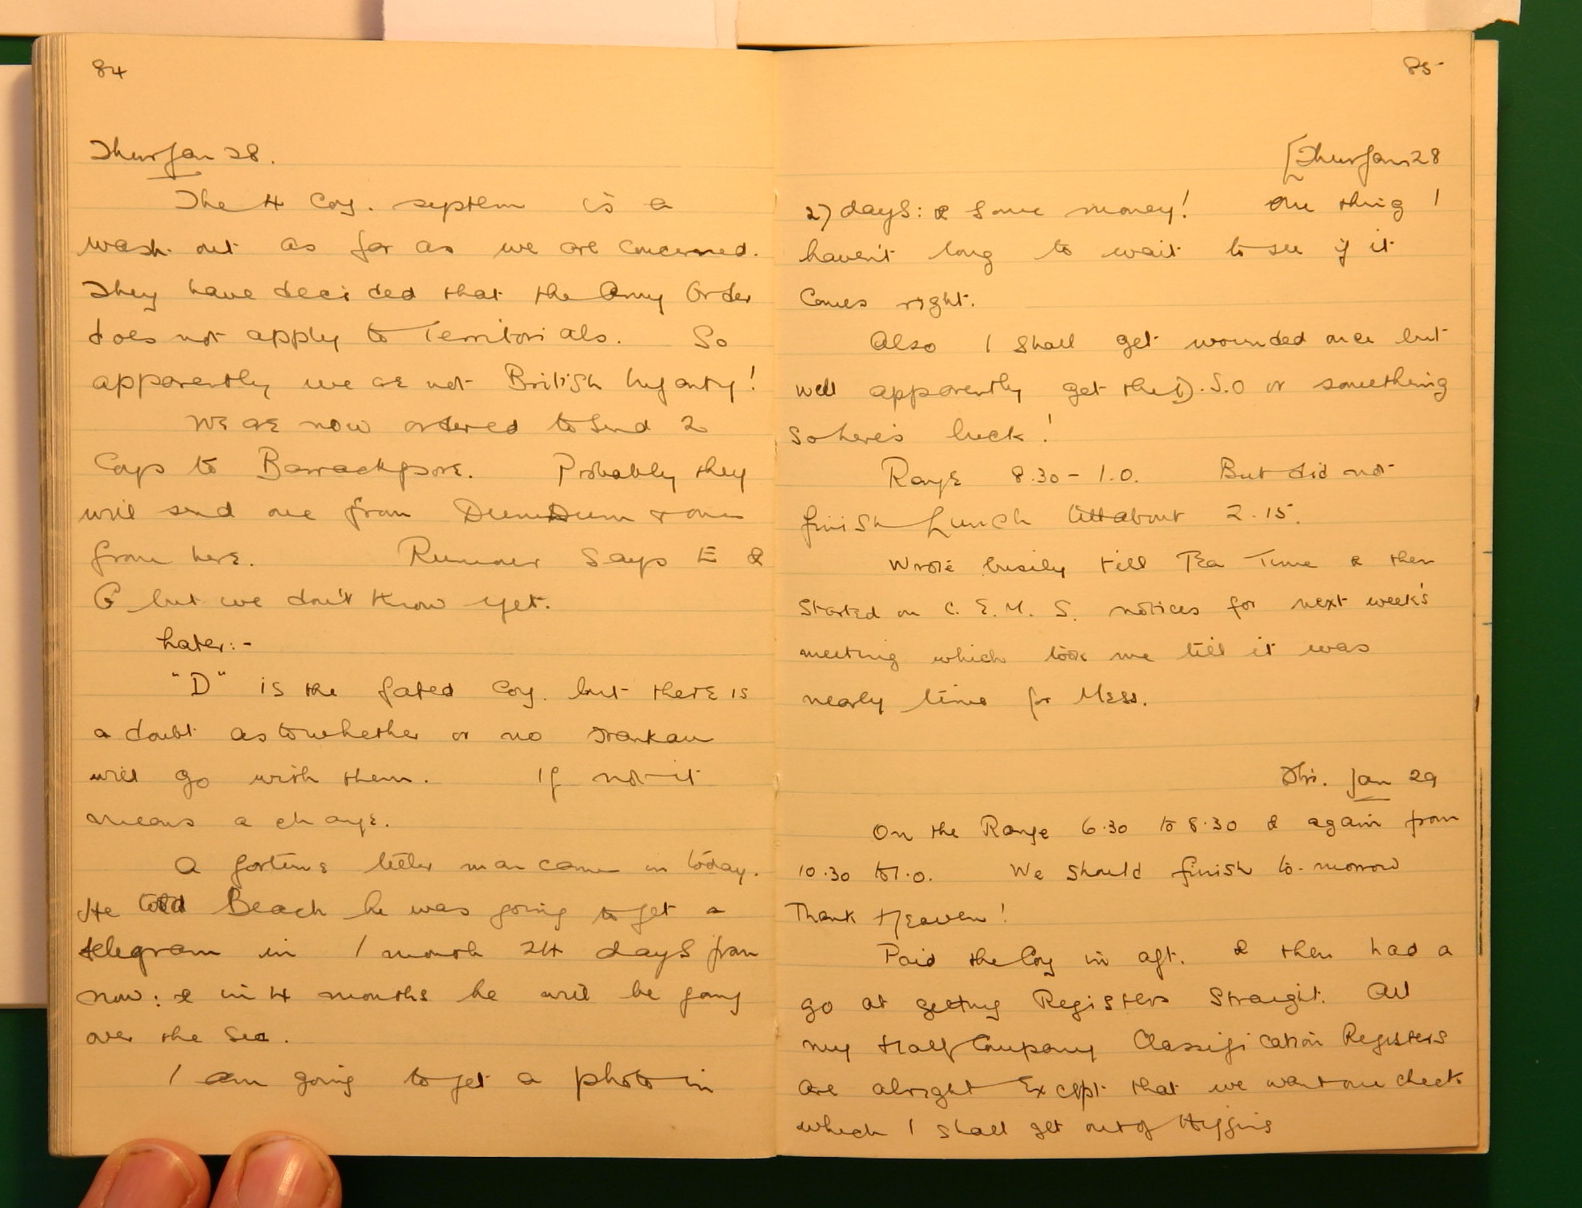 84
Thur Jan 28.
The 4 Coy. system is a
wash out as far as we are concerned.
They have decided that the Army Order
does not apply to Territorials. So
apparently we are not British Infantry!
We are now ordered to send 2
Coys to Barrackpore. Probably they
will send one from DumDum & one
from here. Rumour says E &
G but we don't know yet.
Later:-
"D" is the fated Coy. but there is
a doubt as to whether or no
will go with them. If not it
means a change.
A fortune teller man came in today.
He told Beach he was going to get a
telegram in 1 month 24 days from
now: & in 4 months he will be going
over the Sea.
I am going to get a photo in
85
[Thur Jan 28
27 days: & some money! One thing I
haven't long to wait to see if it
comes right.
Also I shall get wounded once but
will apparently get the D.S.O or something
so here's luck!
Range 8.30 - 1.0. But did not
finish Lunch till about 2.15.
Wrote busily till Tea Time & then
Started on C.E.M.S. notices for next week's
meeting which took me till it was
nearly time for Mess.
Fri. Jan 29
On the Range 6.30 to 8.30 & again from
10.30 to 1.0. We should finish to-morrow
Thank Heaven!
Paid the Coy in aft. & then had a
go at getting Registers Straight. All
my Half Company Classification Registers
are alright Except that we want one check
which I shall get out of Higgins